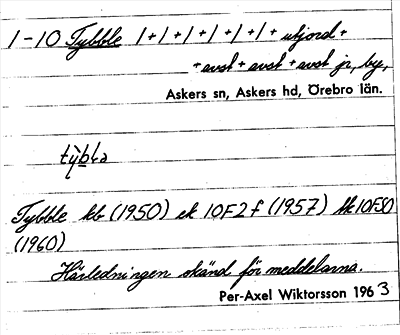 1-10 Tybble 1+1+1+1+1+1+ utjord +
+ avst + avst + avst jr, by,
Askers sn, Askers hd, Örebro län.
Tybble kb (1950) ek 10F2f (1957) tk 10F50
(1960)
Härledningen okänd för meddelarna.
Per-Axel Wiktorsson 1963